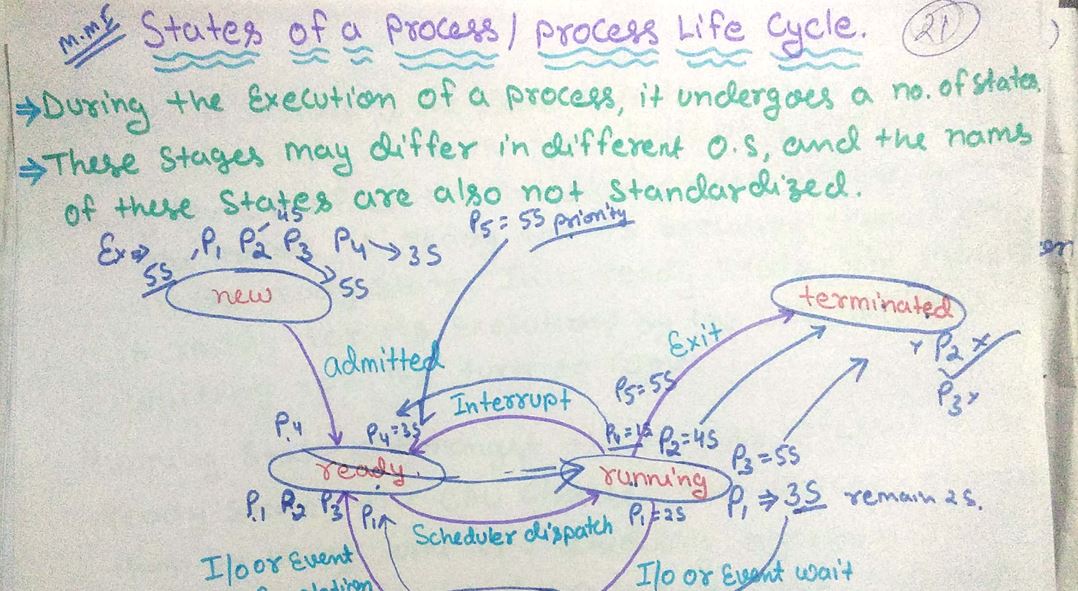 M.M.I States of a Process / Process Life Cycle. 21
⇒ During the Execution of a process, it undergoes a no. of states.
⇒ These stages may differ in different O.S, and the nams
of these States are also not Standardized.
4S
P5 = 5S priority
Ex⇒ P1 P2 P3 P4 → 3S
5S
5S
new
terminated
Exit
P2
P3
admitted
P5=5S
Interrupt
P4 P4=3S
P2=4S
P3=5S
ready
running
P1 ⇒ 3S remain 2S.
P1 P2 P3 P1
P1=2S
Scheduler dispatch
I/o or Event
I/o or Event wait